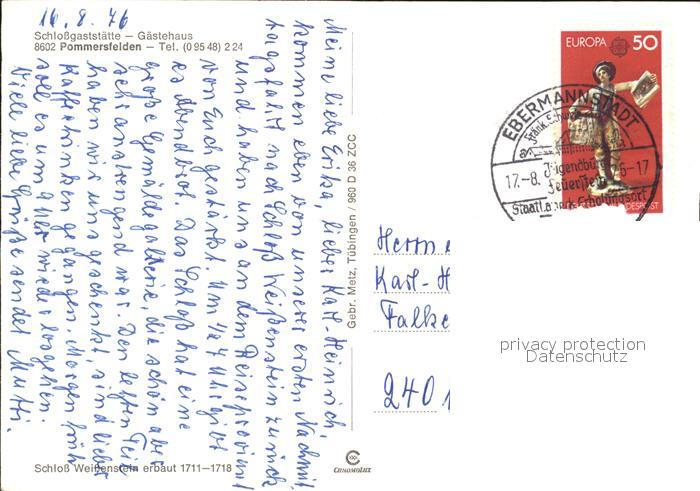 16.8.76
Schloßgaststätte – Gästehaus
8602 Pommersfelden – Tel. (0 95 48) 2 24
Meine liebe Erika, lieber Karl-Heinrich,
kommen eben von unserer ersten Nachmit
tagsfahrt nach Schloß Weißenstein zurück
und haben uns an dem Reiseproviant
von Euch gestärkt. Um ½ 7 Uhr gibt
es Abendbrot. Das Schloß hat eine
große Gemäldegalerie, die schön aber
sehr anstrengend war. Den letzten Teil
haben wir uns geschenkt, sind lieber
Kaffeetrinken gegangen. Morgen früh
soll es um 9 Uhr wieder losgehen.
Viele liebe Grüße sendet Mutti.
Schloß Weißenstein erbaut 1711–1718
Gebr. Metz, Tübingen / 960 D 36 ZCC
CHROMOLUX
EUROPA 50
EBERMANNSTADT
17.-8. 76-17
Jugendburg
Feuerstein
Staatl. anerk. Erholungsort
DESPOST
Herrn
Karl-H
Falke
240
privacy protection
Datenschutz